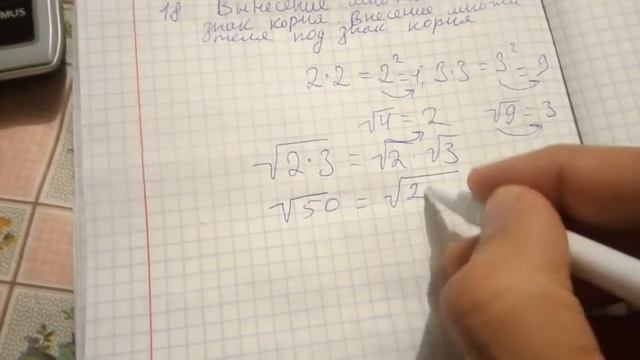 MUS
18 Вынесение
знак корня. Внесение множи
теля под знак корня
2·2 = 2² = 4, 3·3 = 3² = 9
√4 = 2 √9 = 3
√2·3 = √2 · √3
√50 = √2